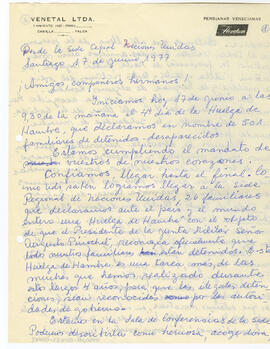 VENETAL LTDA.
PERSIANAS VENECIANAS
CASILLA TALCA
Desde la Sede Cepal Naciones Unidas
Santiago 17 de junio, 1977
¡Amigos, compañeros hermanos!
Iniciamos hoy 17 de junio a las
9.30 de la mañana el 4º dia de la Huelga de
Hambre, que declaramos en nombre de 501
familiares de detenidos desaparecidos
Estamos cumpliendo el mandato de
nuestros corazones.
Confiamos, llegar hasta el final. Co
mo uds saben logramos llegar a la Sede
Regional de Naciones Unidas, 26 familiares
que declararon ante el país y el mundo
entero una Huelga de Hambre con el objeto
de que el Presidente de la Junta Militar Señor
Augusto Pinochet, reconozca oficialmente que
todos nuestros familiares están detenidos. Esta
Huelga de Hambre es una tarea más, de las
muchas que hemos realizado durante
estos largos 4 años, para que las ilegales deten
ciones, sean reconocidas por las autori
dades de gobierno.
Estamos en la Sala de Conferencias de la Sede
Podemos describirla como hermosa, acogedora